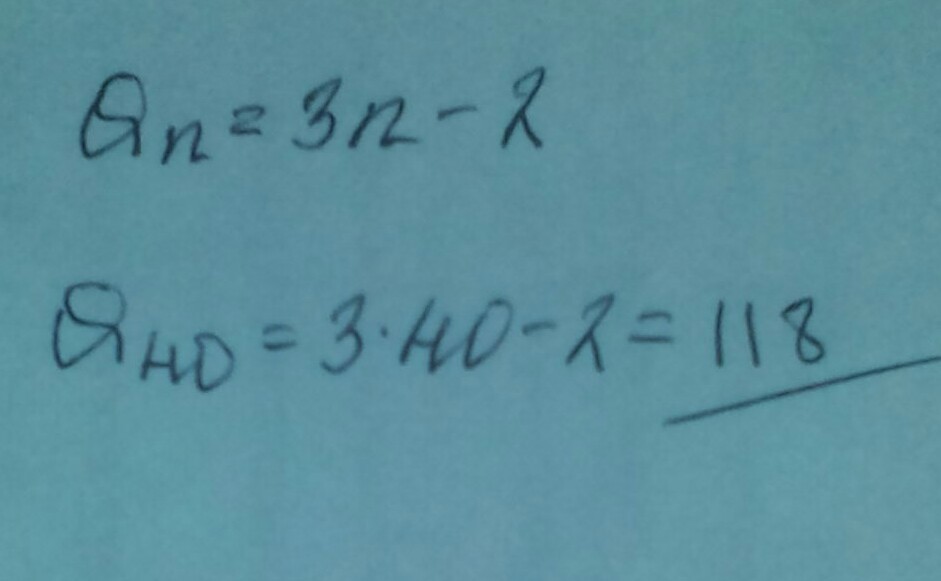 aₙ = 3n - 2
a₄₀ = 3·40 - 2 = 118